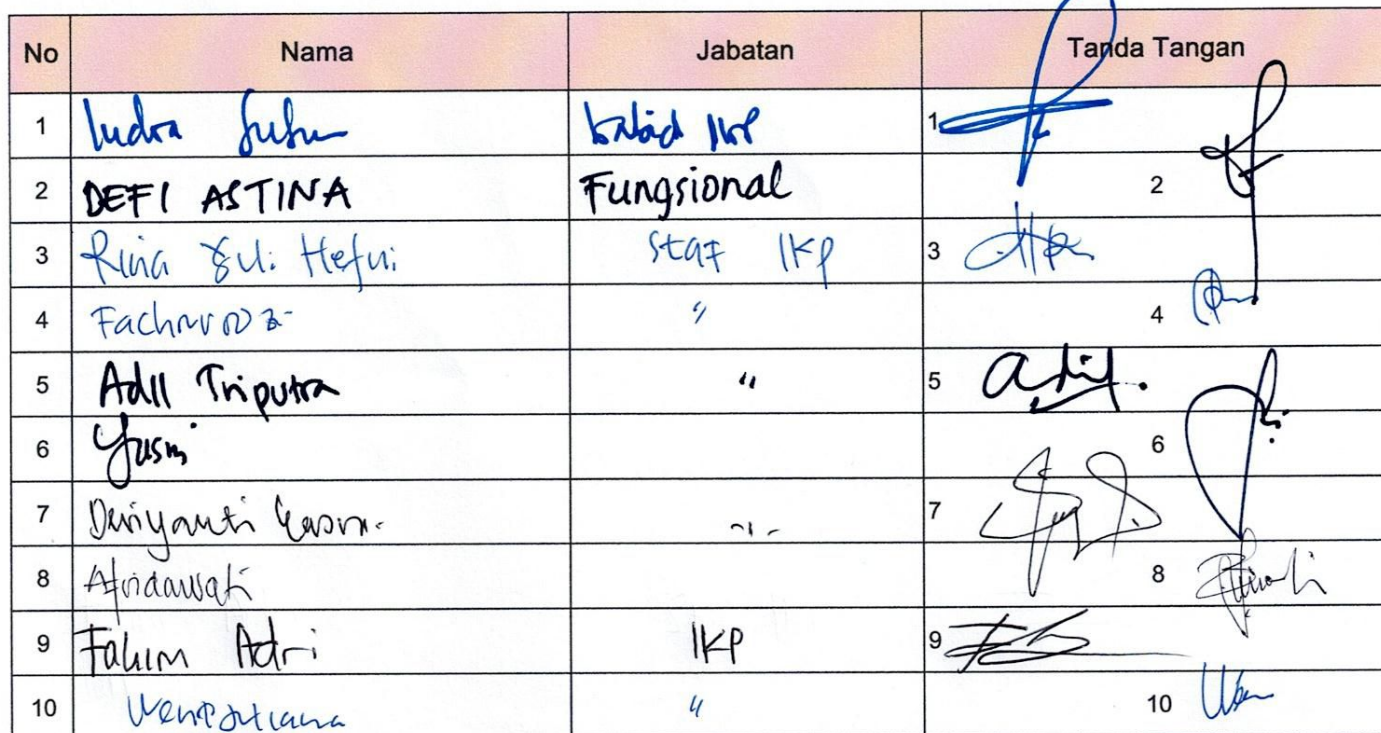 No Nama Jabatan Tanda Tangan
1 Indra Kabid IKP 1
2 DEFI ASTINA Fungsional 2
3 Rina Yuli Hefni Staf IKP 3
4 Fachrurozi " 4
5 Adil Triputra " 5 Adil.
6 Yusni 6
7 Deviyanti -"- 7
8 Afridawati 8
9 Fahim Adri IKP 9
10 " 10